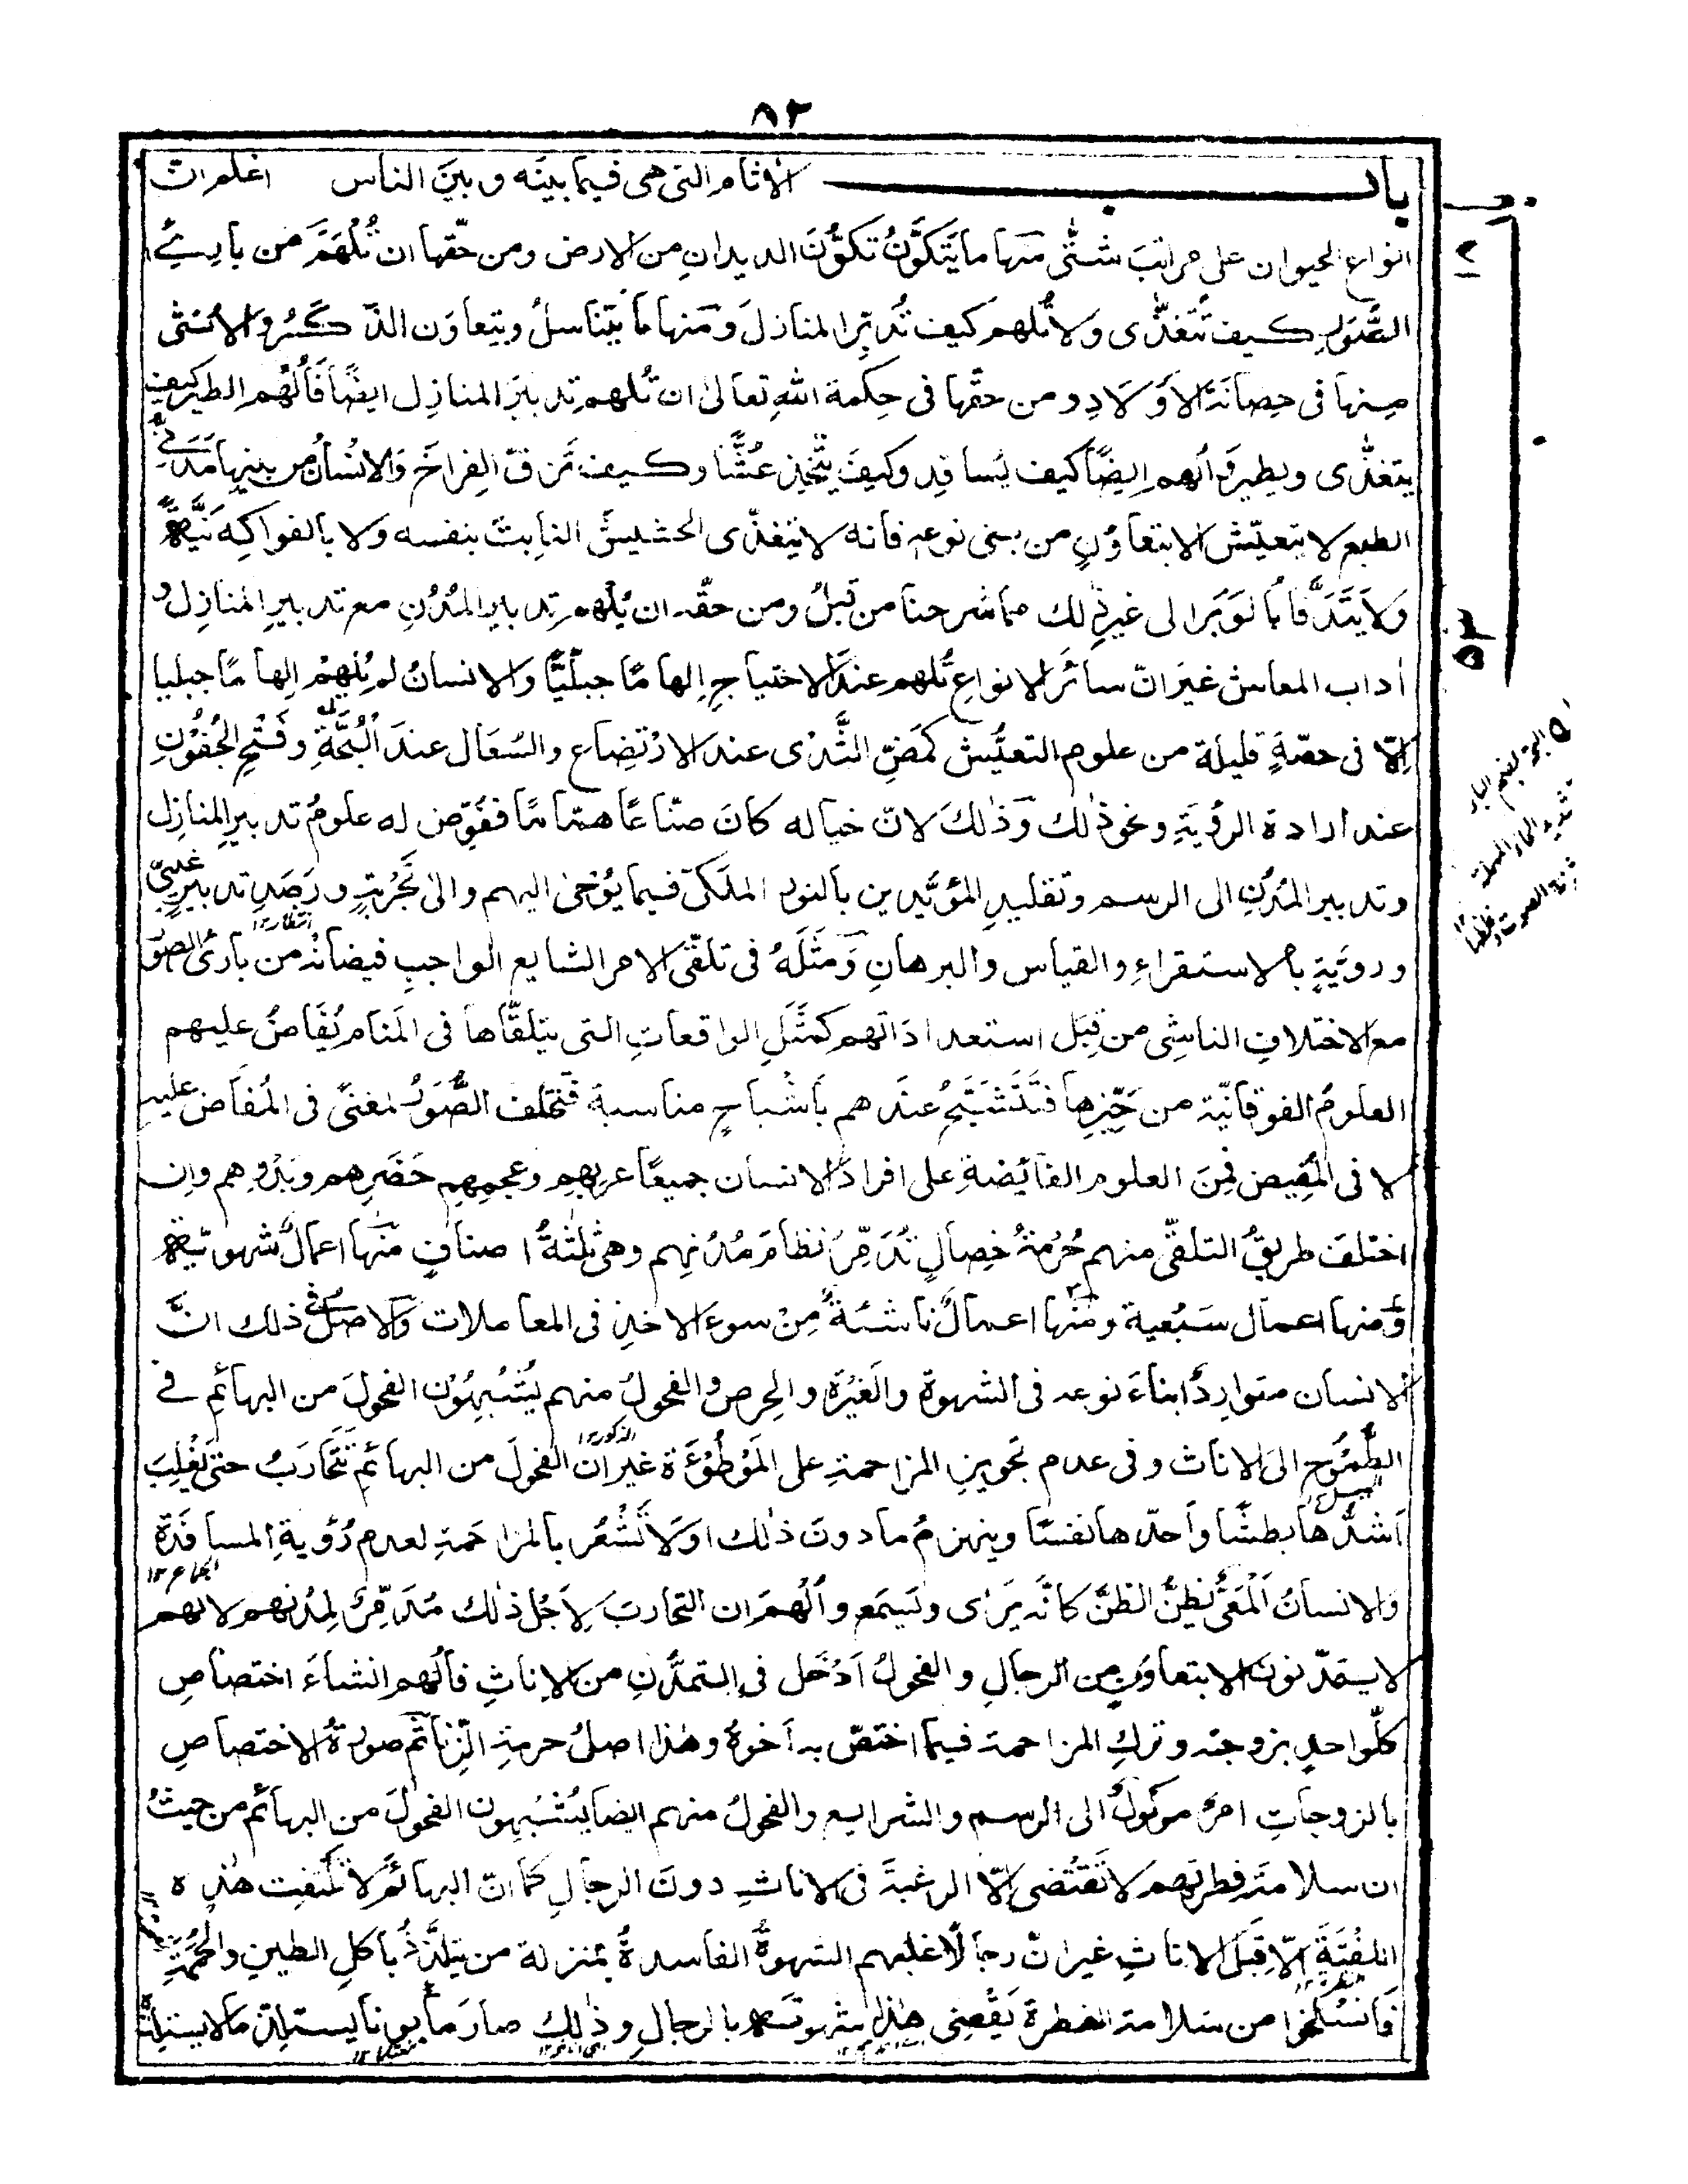 ٨٢
باب الاثام التى هى فيما بينه وبين الناس اعلم ان
انواع الحيوان على مراتب شتّٰى منها ما يتكوّن تكوّن الديدان من الارض ومن حقّها ان تُلهم من بارئ
الصُّوَر كيف تتغذّى ولا تُلهم كيف تُدبّر المنازل ومنها ما يتناسل ويتعاون الذكر والانثى
منها فى حضانة الاولاد ومن حقّها فى حكمة الله تعالىٰ ان تُلهم تدبير المنازل ايضًا فاُلهم الطير كيف
يتغذّى ويطير واُلهم ايضًا كيف يُسافد وكيف يتّخذ عُشّا وكيف تزقّ الفراخ والانسان من بينها مدنى
الطبع لا يتعيّش الا بتعاون من بنى نوعه فانه لا يتغذّى الحشيش النابت بنفسه ولا بالفواكه نيّة
ولا يتدفّأ بالوبر الى غير ذٰلك مما شرحنا من قبل ومن حقّه ان يُلهم تدبير المُدُن مع تدبير المنازل و
اداب المعاش غير انّ سائر الانواع تُلهم عند الاحتياج الهامًا جبليًّا والانسان لم يُلهم الهامًا جبليا
الّا فى حصّة قليلة من علوم التعيّش كمصّ الثّدى عند الارتضاع والسُعال عند البُحّة وفتح الجُفون
عند ارادة الرؤية ونحو ذٰلك وذٰلك لانّ خياله كان صنّاعًا همّامًا ففُوّض له علوم تدبير المنازل
وتدبير المُدُن الى الرسم وتقليد المؤيّدين بالنور الملكىّ فيما يُوحىٰ اليهم والىٰ تجربة ورصد تدبير غيبىّ
وروية بالاستقراء والقياس والبرهان ومَثَله فى تلقّى الامر الشايع الواجب فيضانه من بارئ الصور
مع الاختلاف الناشى من قِبَل استعداداتهم كمثل الواقعات التى يتلقّاها فى المنام يُفاض عليهم
العلوم الفوقانيّة من حيّزها فتتشبّح عندهم باشباح مناسبة فتختلف الصُّوَر لمعنًى فى المُفاض عليه
لا فى المُفيض فمن العلوم الفائضة على افراد الانسان جميعًا عربهم وعجمهم حضرهم وبدوهم وان
اختلف طريق التلقّى منهم حُرمة خصال تُدمّر نظام مُدُنهم وهى ثلٰثة اصناف منها اعمال شهوية
ومنها اعمال سبُعية ومنها اعمال ناشئة من سوء الاخذ فى المعاملات والاصل فى ذلك انّ
الانسان متوارد ابناء نوعه فى الشهوة والغيرة والحرص والفحول منهم يُشبهون الفحول من البهائم فى
الطُّموح الى الاناث وفى عدم تجويز المزاحمة على الموطوءة غير ان الفحول من البهائم تتحارب حتى يغلب
اشدّها بطشا واحدّها نفسًا وينهزم ما دون ذٰلك او لا تشعر بالمزاحمة لعدم رُؤية المسافدة
والانسان المعىّ يظنّ الظنّ كانّه يرٰى ويسمع واُلهم ان التحارب لاجل ذٰلك مُدمّر لمُدُنهم لانهم
لا يتمدّنون الا بتعاون من الرجال والفحول ادخل فى التمدّن من الاناث فاُلهم انشاء اختصاص
كلّ واحد بزوجته وترك المزاحمة فيما اختصّ به اخوه وهٰذا اصل حرمة الزنا ثم صورة الاختصاص
بالزوجات امر موكول الى الرسم والشرايع والفحول منهم ايضا يُشبهون الفحول من البهائم من حيث
ان سلامة فطرتهم لا تقتضى الّا الرغبة فى الاناث دون الرجال كما ان البهائم لا تلتفت هٰذه
اللفتة الّا قِبَل الاناث غير انّ رجالًا غلبهم الشهوة الفاسدة بمنزلة من يتلذّذ باكل الطين والحُممة
فانسلخوا من سلامة الفطرة يقضى هٰذا شهوته بالرجال وذٰلك صار مأبونا يستلذّ ما لا يستلذّه
٢
٥٣
البحة بضم الباء